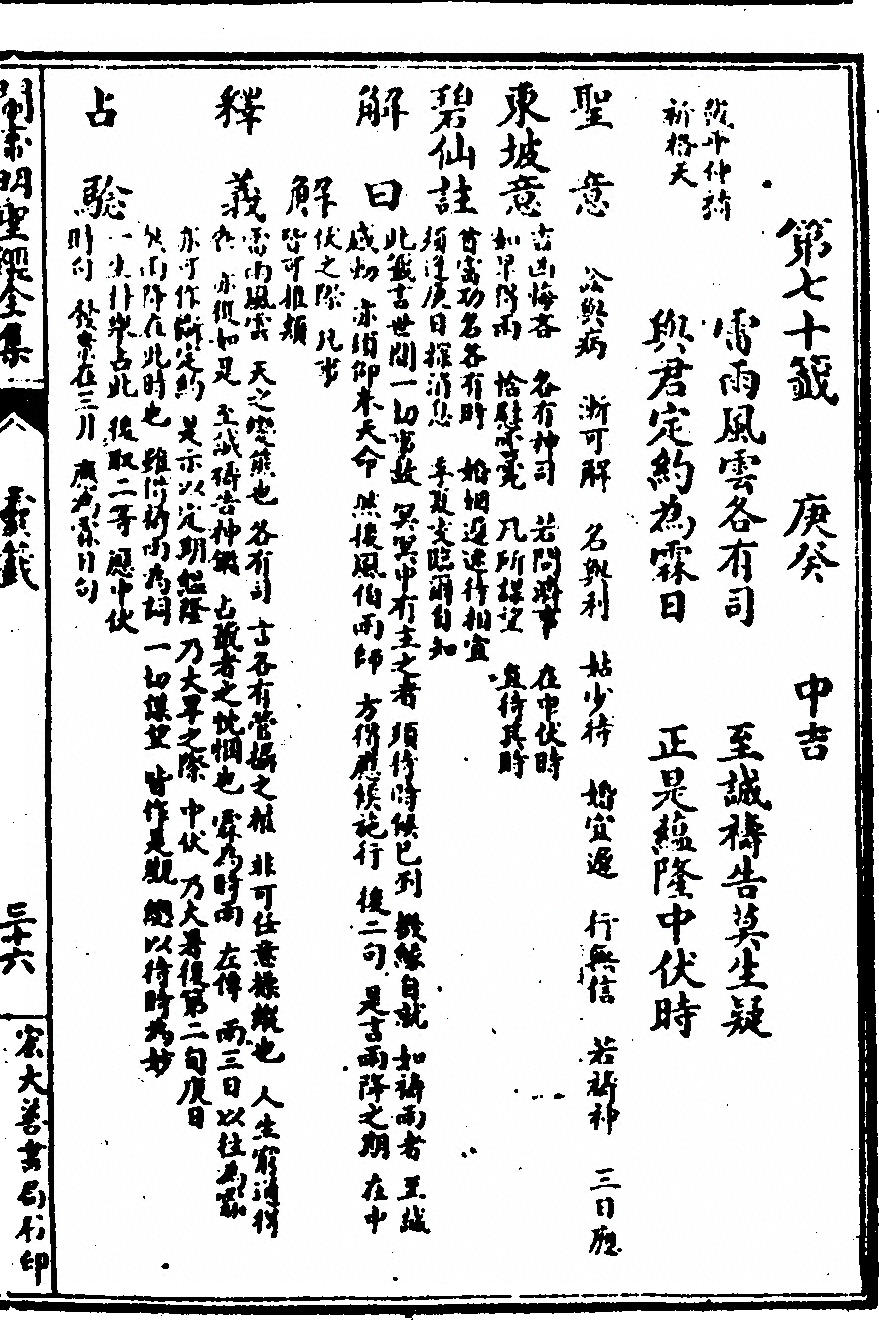 第七十籤 庚癸 中吉
祈格天
雷雨風雲各有司 至誠禱告莫生疑
與君定約為霖日 正是蘊隆中伏時
聖意 訟與病 漸可解 名與利 姑少待 婚宜遲 行無信 若禱神 三日應
東坡意 吉凶悔吝 各有神司 若問濟事 在中伏時
如旱得雨 恰慰 凡所謀望 宜待其時
碧仙註 富功名各有時 婚姻遲速待相宜
須逢庚日探消息 季夏交臨爾自知
解曰 此籤言世間一切事故 冥冥中有主之者 須待時候已到 機緣自就 如禱雨者 至誠
感切 亦須仰求天命 然後風伯雨師 方得應候施行 後二句 是言雨降之期 在中
伏之際 凡事
皆可推類
解
釋義 雷雨風雲 天之變態也 各有司 言各有管攝之權 非可任意操縱也 人生窮通得
亦復如是 至誠禱告神鑒 占驗者之忱悃也 霖為時雨 左傳 雨三日以往為霖
亦可作斷定約 是示以定期 蘊隆 乃大旱之際 中伏 乃大暑後第二旬庚日
雨降在此時也 雖借祈雨為詞 一切謀望 皆作是觀 總以待時為妙
占驗 一生科舉占此 後取二等 應中伏
時旬 發案在三月 應為霖日句
關帝明聖經全集
八
靈籤
三十六
宏大善書局石印